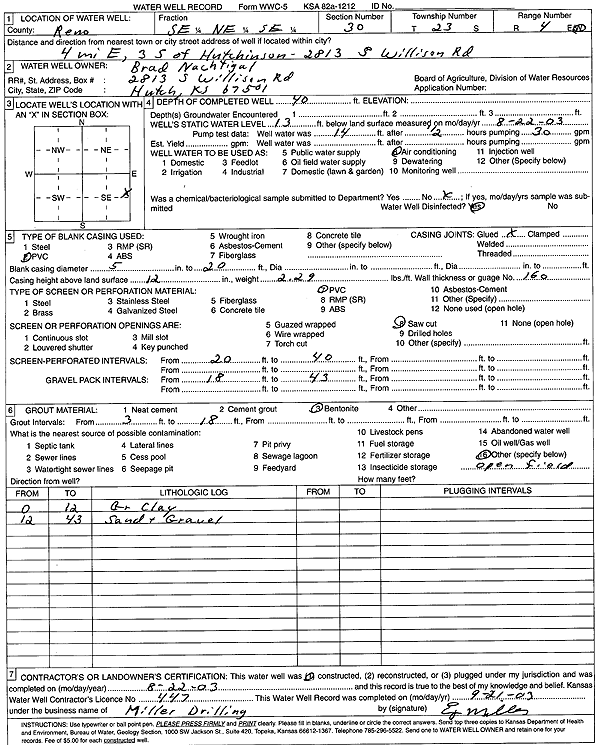 WATER WELL RECORD Form WWC-5 KSA 82a-1212 ID No.
1 LOCATION OF WATER WELL: Fraction Section Number Township Number Range Number
County: Reno SE ¼ NE ¼ SE ¼ 30 T 23 S R 4 E/W
Distance and direction from nearest town or city street address of well if located within city?
4 mi E, 3 S of Hutchinson - 2813 S Willison Rd
2 WATER WELL OWNER: Brad Nachtigal
RR#, St. Address, Box # : 2813 S Willison Rd Board of Agriculture, Division of Water Resources
City, State, ZIP Code : Hutch, KS 67501 Application Number:
3 LOCATE WELL'S LOCATION WITH AN "X" IN SECTION BOX:
N
NW NE
W E
SW SE X
S
4 DEPTH OF COMPLETED WELL 40 ft. ELEVATION:
Depth(s) Groundwater Encountered 1 ft. 2 ft. 3 ft.
WELL'S STATIC WATER LEVEL 13 ft. below land surface measured on mo/day/yr 8-22-03
Pump test data: Well water was 14 ft. after 1/2 hours pumping 30 gpm
Est. Yield gpm: Well water was ft. after hours pumping gpm
WELL WATER TO BE USED AS: 5 Public water supply 8 Air conditioning 11 Injection well
1 Domestic 3 Feedlot 6 Oil field water supply 9 Dewatering 12 Other (Specify below)
2 Irrigation 4 Industrial 7 Domestic (lawn & garden) 10 Monitoring well
Was a chemical/bacteriological sample submitted to Department? Yes No X ; If yes, mo/day/yrs sample was submitted Water Well Disinfected? Yes No
5 TYPE OF BLANK CASING USED: 5 Wrought iron 8 Concrete tile CASING JOINTS: Glued X Clamped
1 Steel 3 RMP (SR) 6 Asbestos-Cement 9 Other (specify below) Welded
2 PVC 4 ABS 7 Fiberglass Threaded
Blank casing diameter 5 in. to 20 ft., Dia in. to ft., Dia in. to ft.
Casing height above land surface 12 in., weight 2.29 lbs./ft. Wall thickness or guage No. 160
TYPE OF SCREEN OR PERFORATION MATERIAL: 7 PVC 10 Asbestos-Cement
1 Steel 3 Stainless Steel 5 Fiberglass 8 RMP (SR) 11 Other (Specify)
2 Brass 4 Galvanized Steel 6 Concrete tile 9 ABS 12 None used (open hole)
SCREEN OR PERFORATION OPENINGS ARE: 5 Guazed wrapped 8 Saw cut 11 None (open hole)
1 Continuous slot 3 Mill slot 6 Wire wrapped 9 Drilled holes
2 Louvered shutter 4 Key punched 7 Torch cut 10 Other (specify) ft.
SCREEN-PERFORATED INTERVALS: From 20 ft. to 40 ft., From ft. to ft.
From ft. to ft., From ft. to ft.
GRAVEL PACK INTERVALS: From 18 ft. to 43 ft., From ft. to ft.
From ft. to ft., From ft. to ft.
6 GROUT MATERIAL: 1 Neat cement 2 Cement grout 3 Bentonite 4 Other
Grout Intervals: From 3 ft. to 18 ft., From ft. to ft., From ft. to ft.
What is the nearest source of possible contamination: 10 Livestock pens 14 Abandoned water well
1 Septic tank 4 Lateral lines 7 Pit privy 11 Fuel storage 15 Oil well/Gas well
2 Sewer lines 5 Cess pool 8 Sewage lagoon 12 Fertilizer storage 16 Other (specify below)
3 Watertight sewer lines 6 Seepage pit 9 Feedyard 13 Insecticide storage open field
Direction from well? How many feet?
FROM TO LITHOLOGIC LOG FROM TO PLUGGING INTERVALS
0 12 Br Clay
12 43 Sand + Gravel
7 CONTRACTOR'S OR LANDOWNER'S CERTIFICATION: This water well was (1) constructed, (2) reconstructed, or (3) plugged under my jurisdiction and was
completed on (mo/day/year) 8-22-03 and this record is true to the best of my knowledge and belief. Kansas
Water Well Contractor's Licence No. 447 This Water Well Record was completed on (mo/day/yr) 9-21-03
under the business name of Miller Drilling by (signature)
INSTRUCTIONS: Use typewriter or ball point pen. PLEASE PRESS FIRMLY and PRINT clearly. Please fill in blanks, underline or circle the correct answers. Send top three copies to Kansas Department of Health
and Environment, Bureau of Water, Geology Section, 1000 SW Jackson St., Suite 420, Topeka, Kansas 66612-1367. Telephone 785-296-5522. Send one to WATER WELL OWNER and retain one for your
records. Fee of $5.00 for each constructed well.